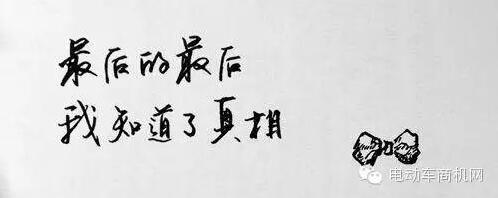 最后的最后
我知道了真相
电动车商机网